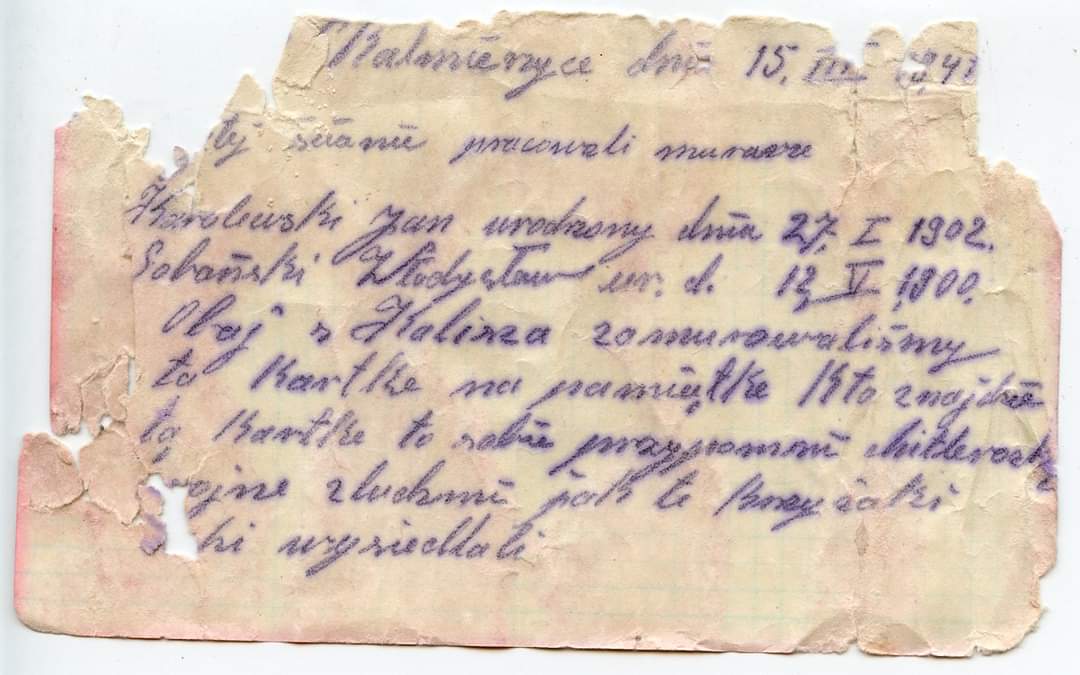 Kalmierzyce dnia 15. III 1941
tej ścianie pracowali murarze
Karolewski Jan urodzony dnia 27. I 1902.
Sobański Władysław ur. d. 12, V 1900.
Obaj s Kalisza zamurowaliśmy
to Kartke na pamiątke Kto znajdzie
tą Kartke to sobie przypomni
wojne z ludzmi jak te Krzyżaki
wysiedlali